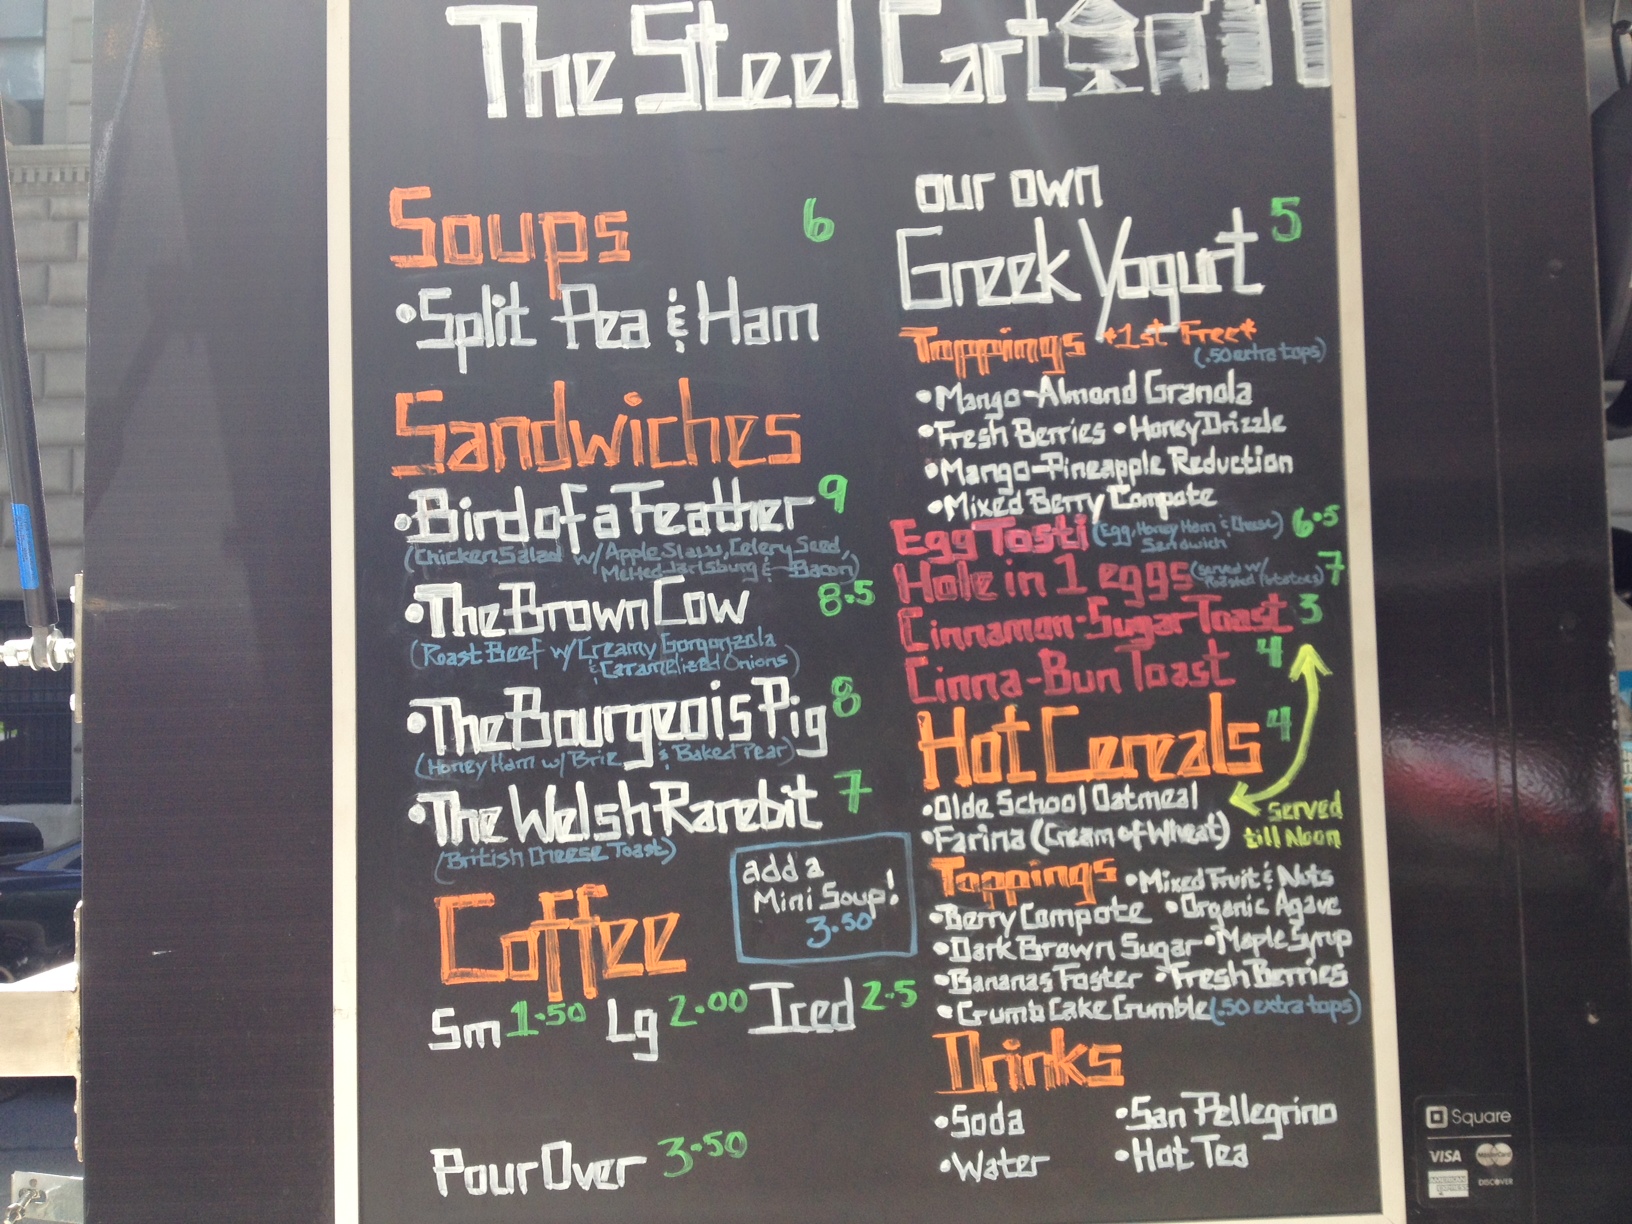 The Steel Cart
Soups 6
•Split Pea & Ham
Sandwiches
•Bird of a Feather 9
(Chicken Salad w/ Apple Slaw, Celery Seed,
Melted Jarlsburg & Bacon)
•The Brown Cow 8.5
(Roast Beef w/ Creamy Gorgonzola
& Caramelized Onions)
•The Bourgeois Pig 8
(Honey Ham w/ Brie & Baked Pear)
•The Welsh Rarebit 7
(British Cheese Toast)
add a
Mini Soup!
3.50
Coffee
Sm 1.50 Lg 2.00 Iced 2.5
Pour Over 3.50
our own
Greek Yogurt 5
Toppings *1st Free*
(.50 extra tops)
•Mango-Almond Granola
•Fresh Berries •Honey Drizzle
•Mango-Pineapple Reduction
•Mixed Berry Compote
Egg Tosti (Egg, Honey Ham & Cheese Sandwich) 6.5
Hole in 1 eggs (served w/ Roasted Potatoes) 7
Cinnamon-Sugar Toast 3
Cinna-Bun Toast 4
Hot Cereals 4
•Olde School Oatmeal
•Farina (Cream of Wheat)
served
till Noon
Toppings •Mixed Fruit & Nuts
•Berry Compote •Organic Agave
•Dark Brown Sugar •Maple Syrup
•Bananas Foster •Fresh Berries
•Crumb Cake Crumble (.50 extra tops)
Drinks
•Soda •San Pellegrino
•Water •Hot Tea
Square
VISA MasterCard
AMERICAN EXPRESS DISCOVER